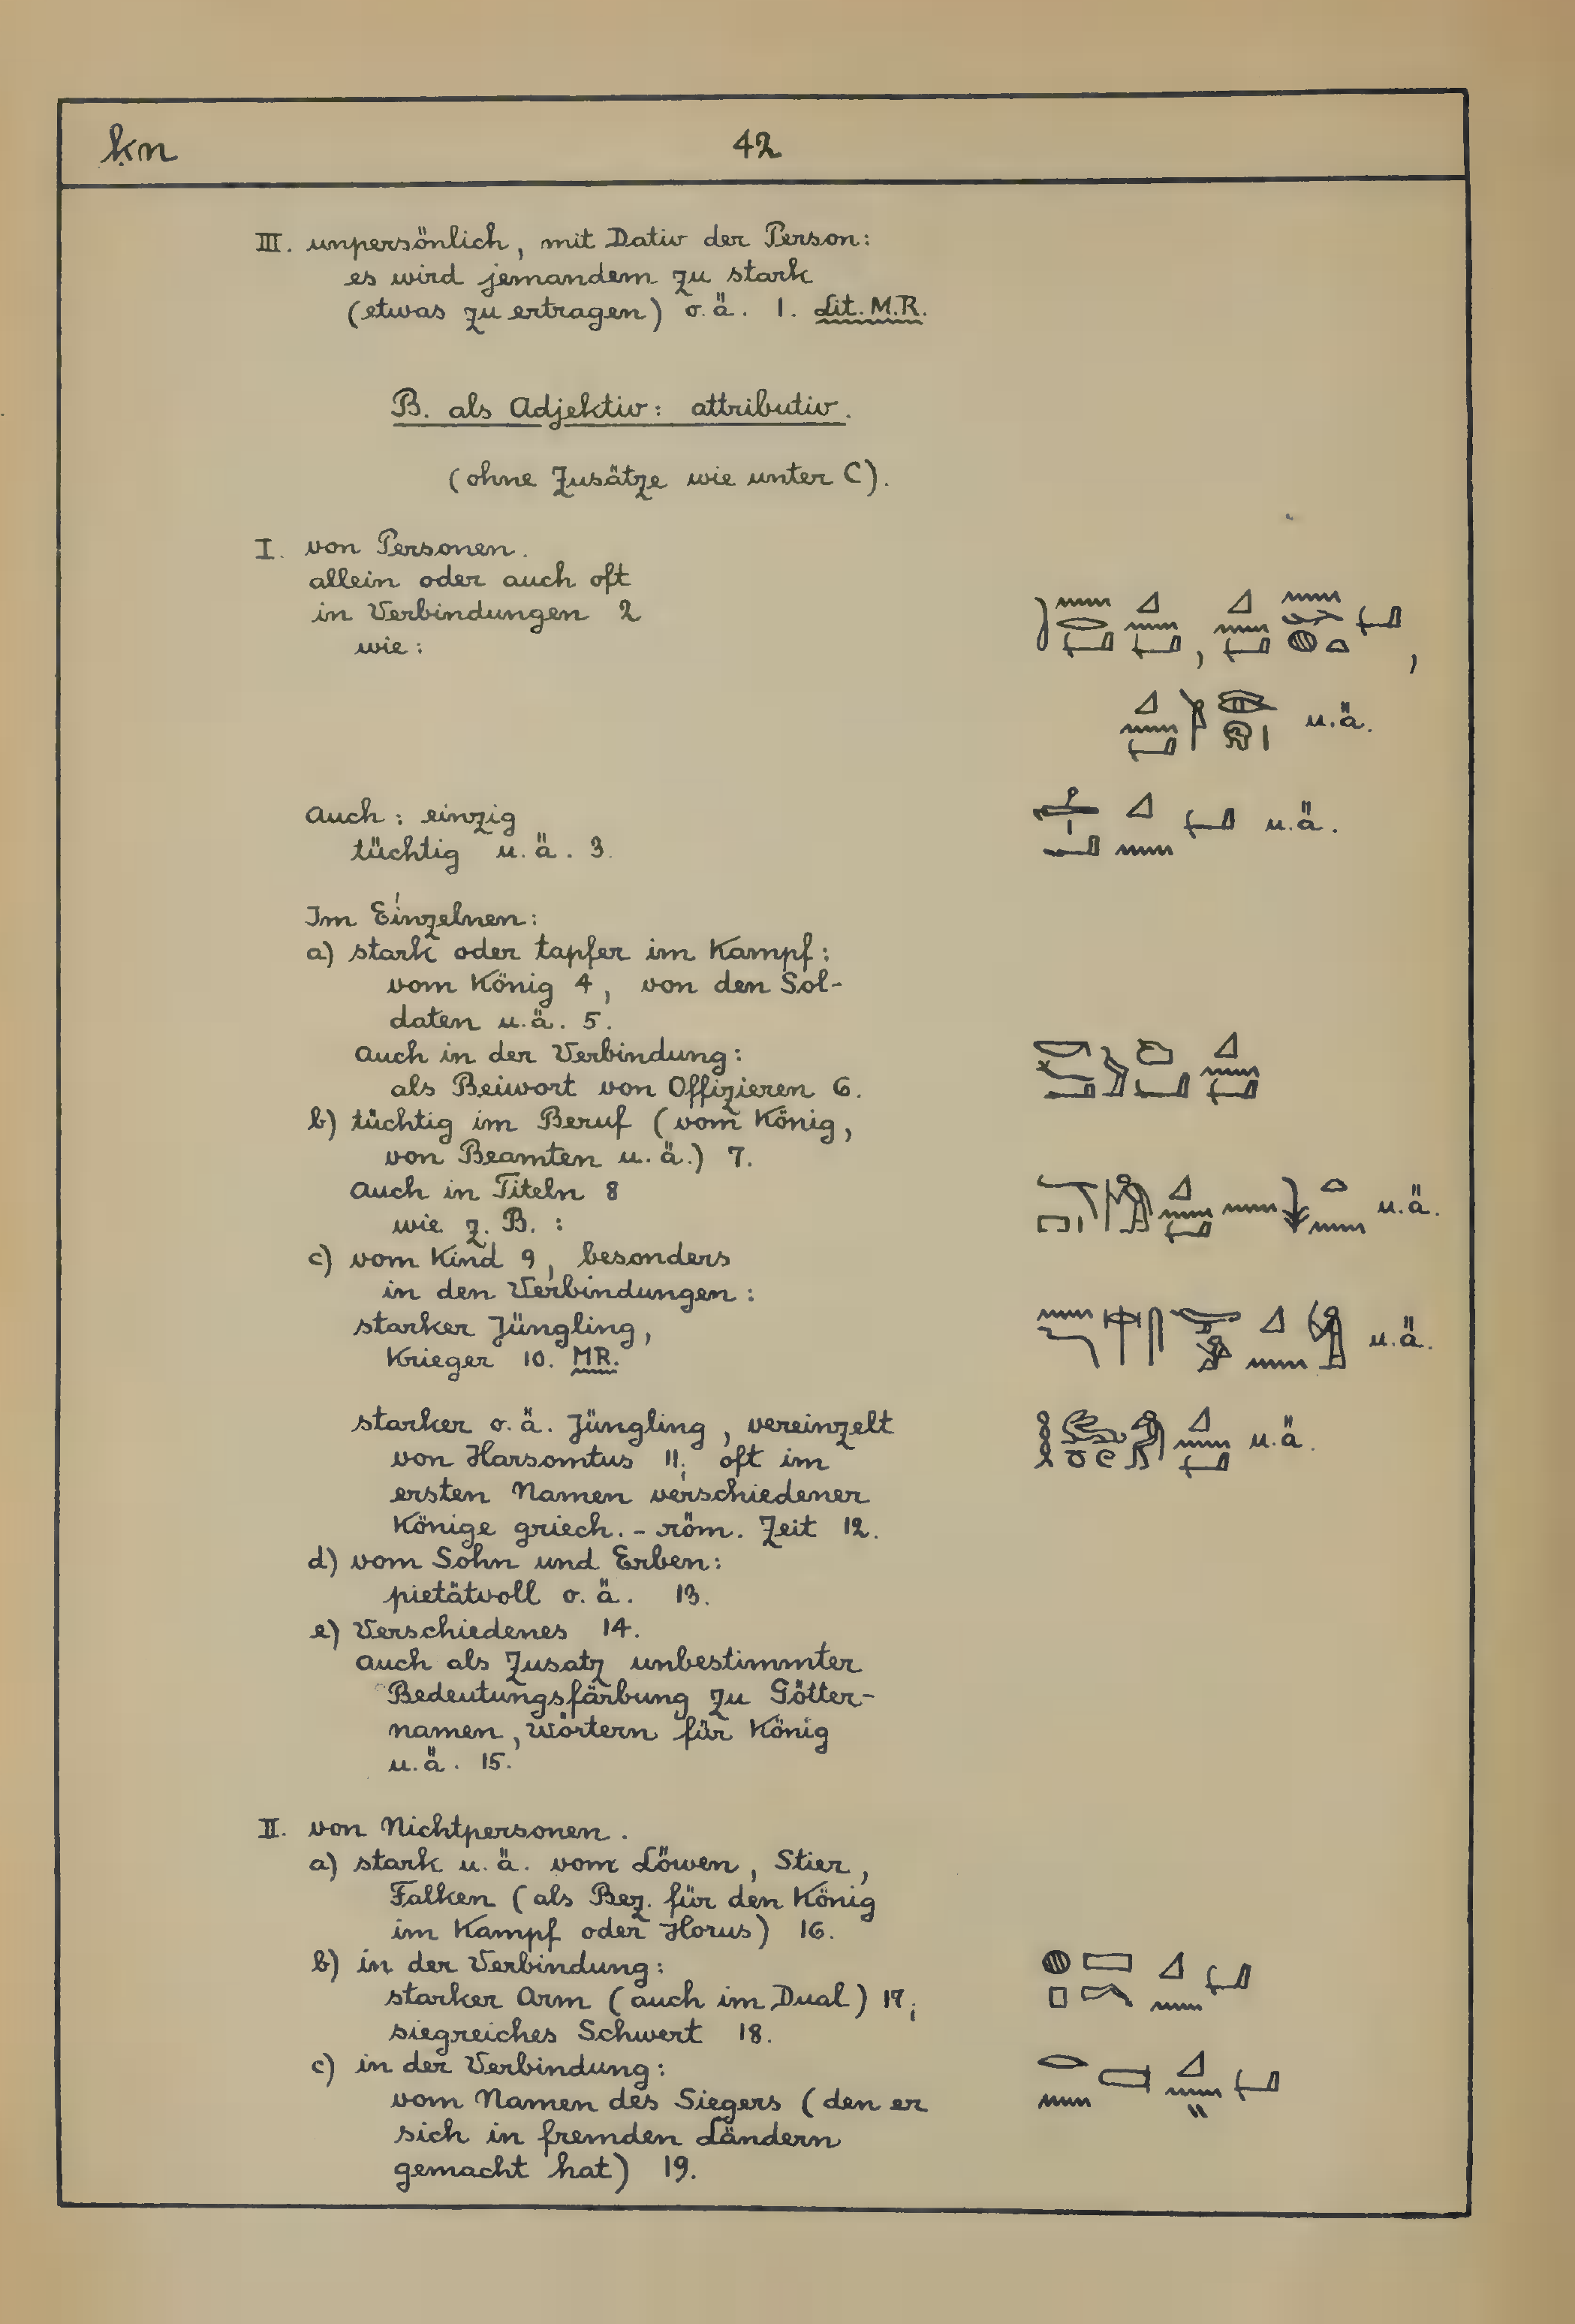 ḳn 42
III. unpersönlich, mit Dativ der Person:
es wird jemandem zu stark
(etwas zu ertragen) o.ä. 1. Lit. M.R.
B. als Adjektiv: attributiv.
(ohne Zusätze wie unter C).
I. von Personen.
allein oder auch oft
in Verbindungen 2
wie:
u.ä.
Auch: einzig
tüchtig u.ä. 3.
u.ä.
Im Einzelnen:
a) stark oder tapfer im Kampf:
vom König 4, von den Sol-
daten u.ä. 5.
Auch in der Verbindung:
als Beiwort von Offizieren 6.
b) tüchtig im Beruf (vom König,
von Beamten u.ä.) 7.
Auch in Titeln 8
wie z. B.:
u.ä.
c) vom Kind 9, besonders
in den Verbindungen:
starker Jüngling,
Krieger 10. MR.
u.ä.
starker o.ä. Jüngling, vereinzelt
u.ä.
von Harsomtus 11; oft im
ersten Namen verschiedener
Könige griech.-röm. Zeit 12.
d) vom Sohn und Erben:
pietätvoll o.ä. 13.
e) Verschiedenes 14.
Auch als Zusatz unbestimmter
Bedeutungsfärbung zu Götter-
namen, Wörtern für König
u.ä. 15.
II. von Nichtpersonen.
a) stark u.ä. vom Löwen, Stier,
Falken (als Bez. für den König
im Kampf oder Horus) 16.
b) in der Verbindung:
starker Arm (auch im Dual) 17;
siegreiches Schwert 18.
c) in der Verbindung:
vom Namen des Siegers (den er
sich in fremden Ländern
gemacht hat) 19.